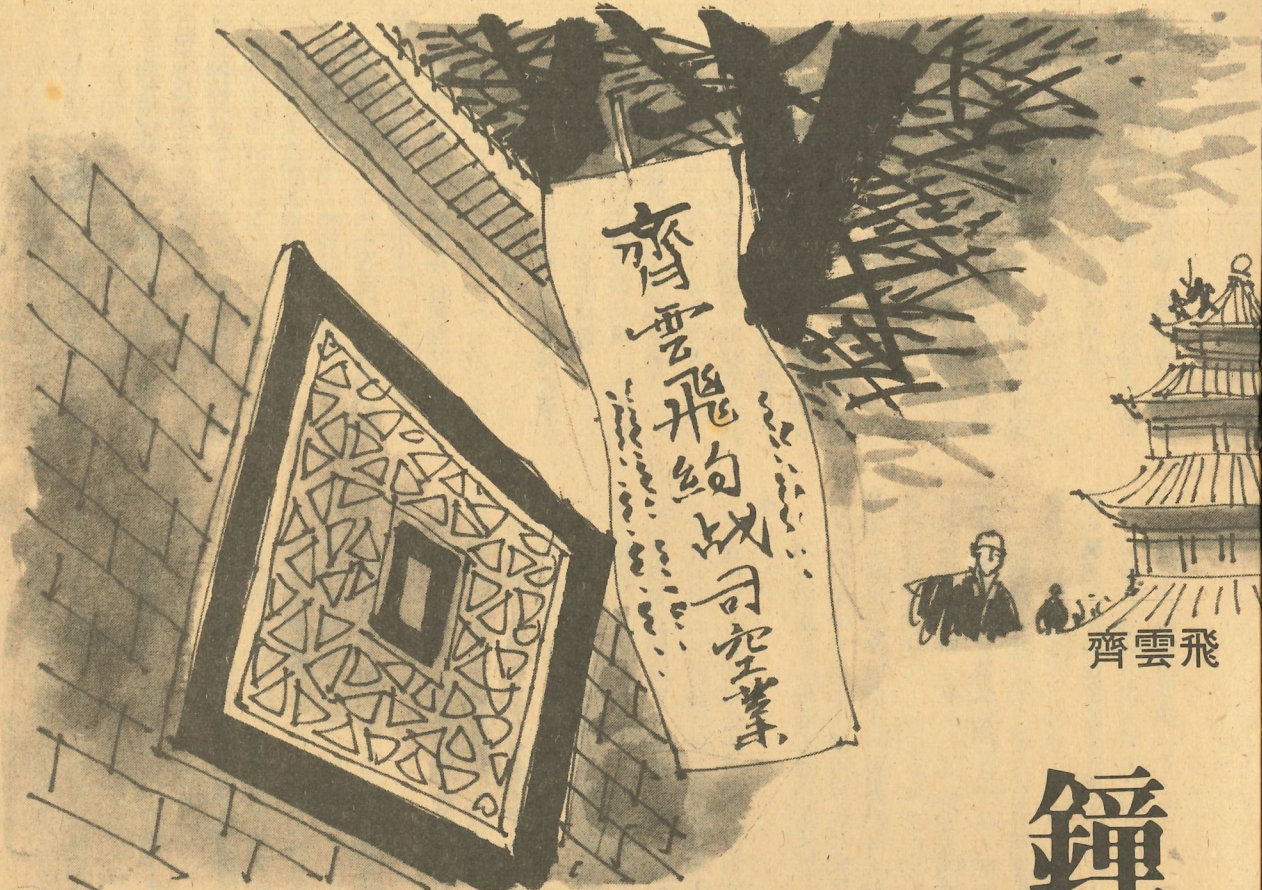 齊雲飛約战司空業
齊雲飛
鐘